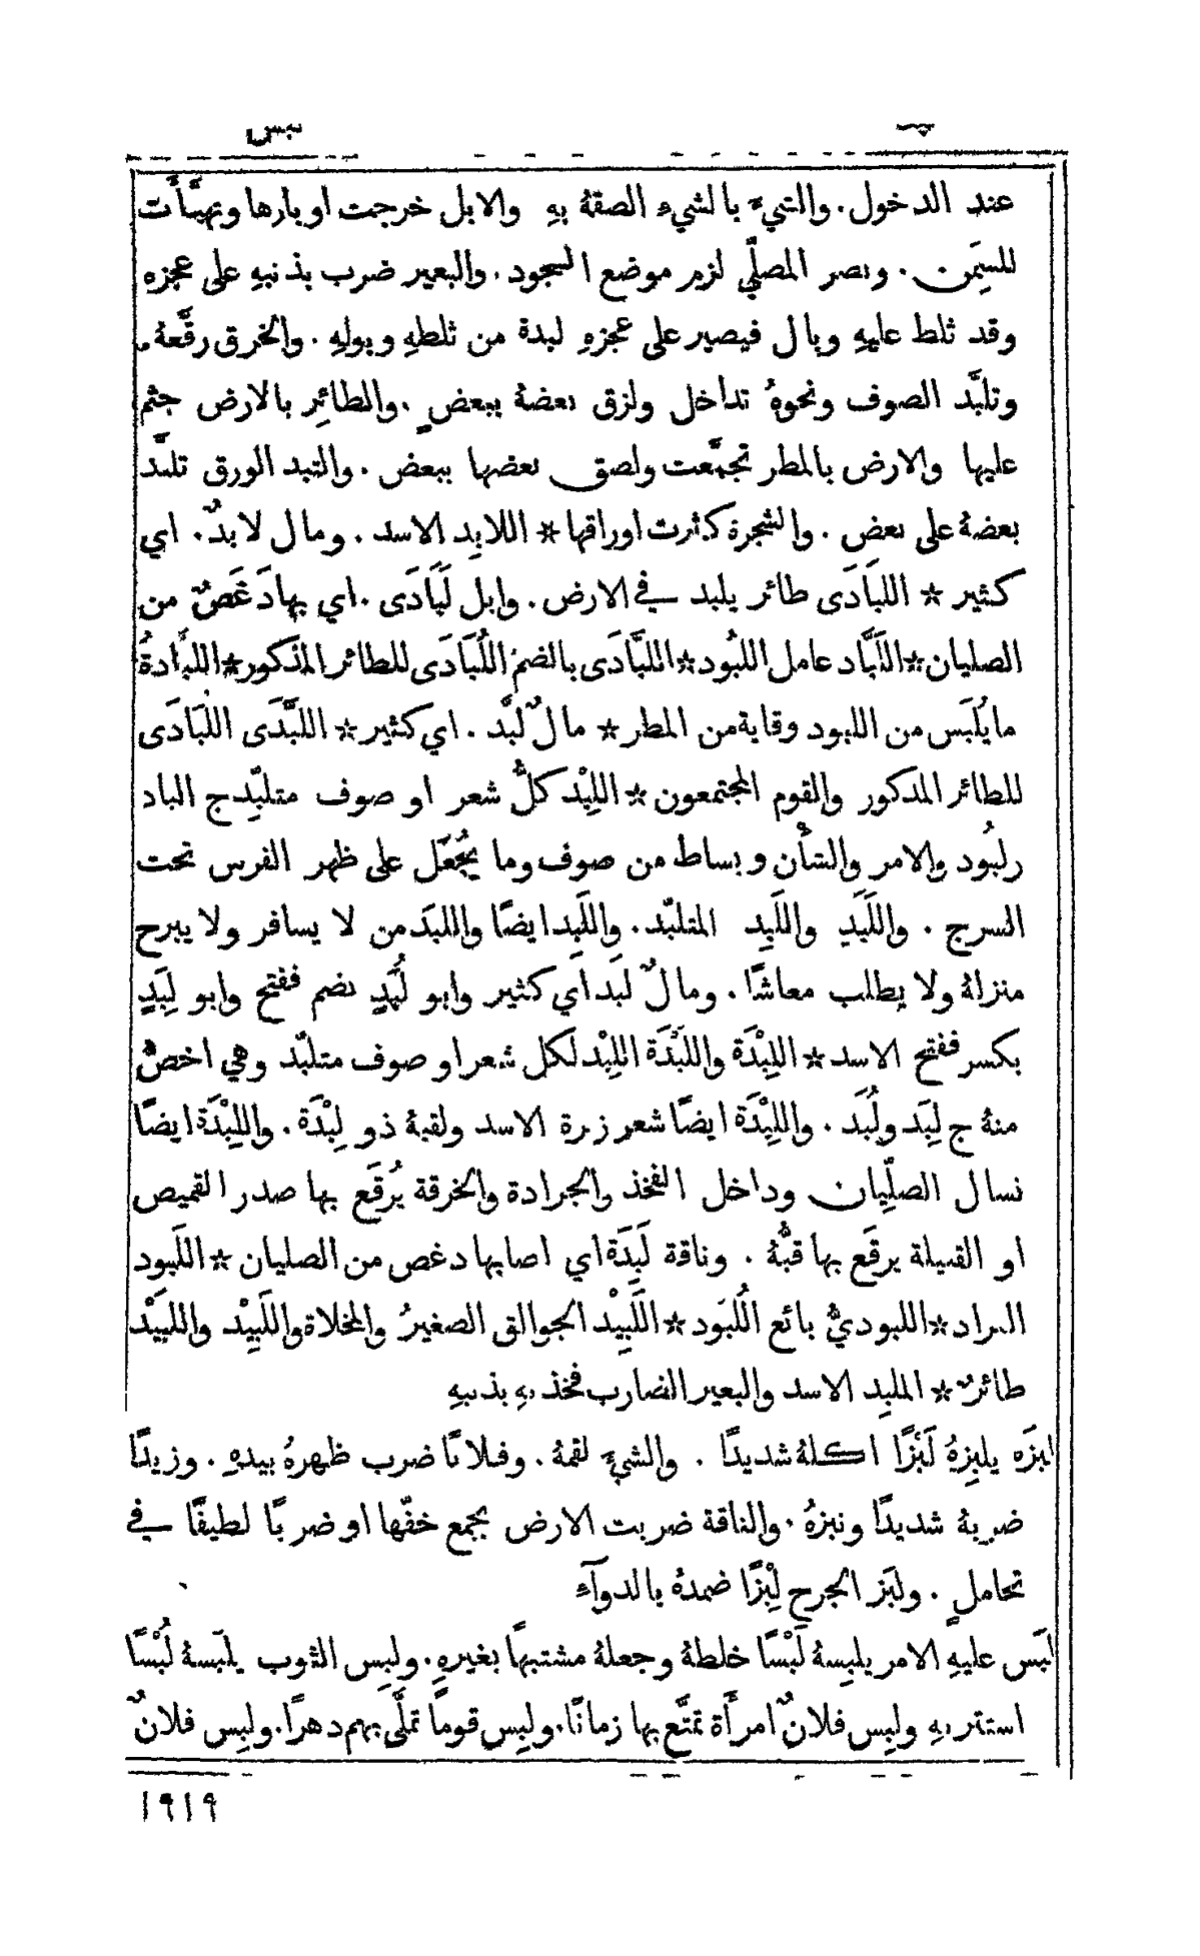 لبس
عند الدخول. والشيءَ بالشيءِ الصقهُ بهِ والابل خرجت اوبارها وتهيَّأَت
للسِمَن. وبصر المصلّي لزم موضع السجود. والبعير ضرب بذنبهِ على عجزهِ
وقد ثلط عليهِ وبال فيصير على عجزهِ لبدة من ثلطهِ وبولهِ. والخرق رقَّعهُ.
وتلبَّد الصوف ونحوهُ تداخل ولزق بعضهُ ببعضٍ. والطائِر بالارض جثم
عليها والارض بالمطر تجمَّعت ولصق بعضها ببعض. والتبد الورق تلبَّد
بعضهُ على بعضٍ. والشجرة كثرت اوراقها * اللابِد الاسد. ومال لابدٌ. اي
كثير * اللبَادَى طائر يلبد في الارض. وابل لَبَادَى. اي بهادَغَصٌ من
الصليان * اللَبَّاد عامل اللبُود * اللبَّادَى بالضم اللُبَادَى للطائر المذكور * اللبَّادةُ
ما يُلبَس من اللبود وقاية من المطر * مالٌ لُبَّد. اي كثير * اللبَّدَى اللبَادَى
للطائر المذكور والقوم المجتمعون * اللِبْد كلُّ شعر او صوف متلبّدج الباد
ولبُود والامر والشأن وبساط من صوف وما يُجْعَل على ظهر الفرس تحت
السرج. واللَبَد واللَبِد المتلبّد. واللَبِد ايضًا واللبَد من لا يسافر ولا يبرح
منزلهُ ولا يطلب معاشًا. ومالٌ لبَد اي كثير وابو لُبَدٍ بضم ففتح وابو لِبَدٍ
بكسر ففتح الاسد * اللِبْدَة واللبْدَة اللِبْد لكل شعر او صوف متلبّد وهي اخصُّ
منهُ ج لِبَد ولُبَد. واللِبْدَة ايضًا شعر زبرة الاسد ولقبهُ ذو لِبْدَة. واللِبْدَة ايضًا
نسال الصلِّيان وداخل الفخذ والجرادة والخرقة يُرقَع بها صدر القميص
او القبيلة يرقَع بها قبُّهُ. وناقة لَبِدَة اي اصابها دغص من الصليان * اللَبود
القراد * اللبوديُّ بائع اللُبَود * اللَبِيْد الجوالق الصغيرُ والمخلاة واللَبِيْد واللبَيْد
طائرٌ * الملبِد الاسد والبعير الضارب فخذيهِ بذنبهِ
لبزَه يلبِزهُ لَبْزًا اكلهُ شديدًا. والشيءَ لقمهُ. وفلانًا ضرب ظهرهُ بيدهِ. وزيدًا
ضربهُ شديدًا ونبزهُ. والناقة ضربت الارض بجمع خفّها او ضربًا لطيفًا في
تحاملٍ. ولبَز الجرح لِبْزًا ضمدهُ بالدوآءِ
لبَس عليهِ الامر يلبِسهُ لَبْسًا خلطهُ وجعلهُ مشتبهًا بغيرهِ. ولبِس الثوب يلبَسهُ لُبْسًا
استتر بهِ ولبِس فلانٌ امرأَة تمتَّع بها زمانًا. ولبِس قومًا تملَّى بهم دهرًا. ولبِس فلانٌ
١٩١٩